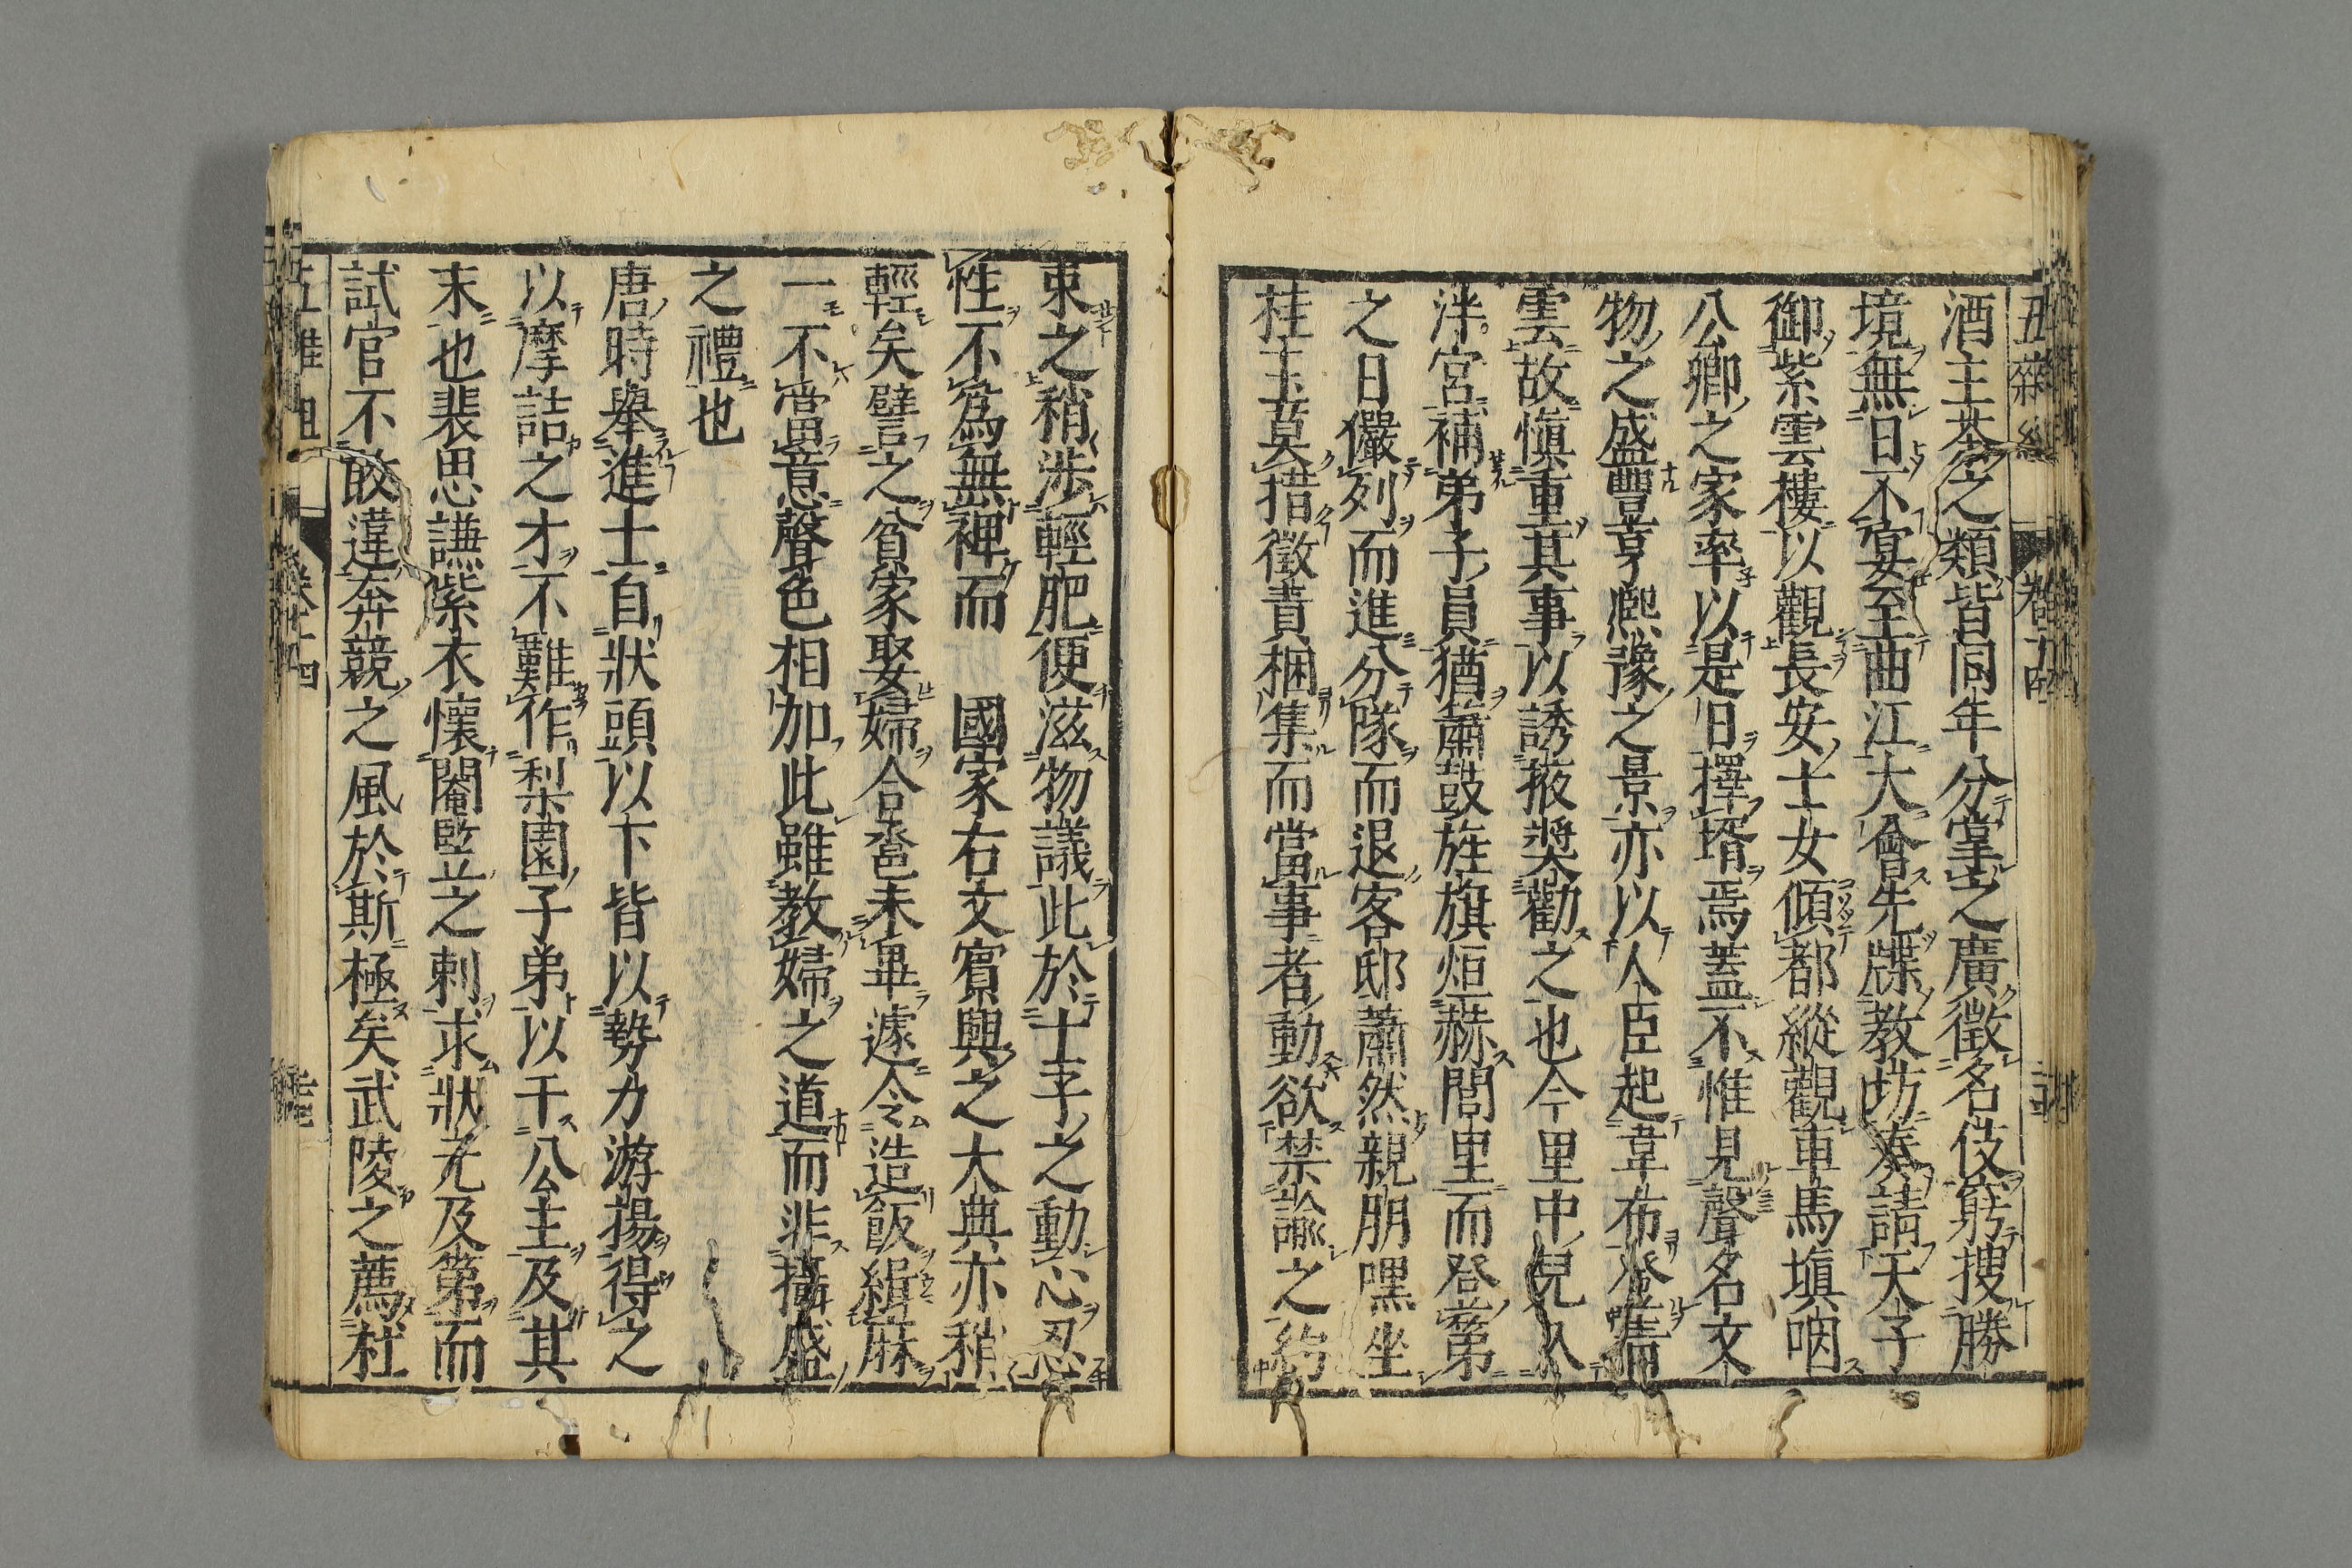 酒主茶之類皆同年分掌之廣徵名伎窮搜勝
境無日不宴至曲江大會先牒教坊奏請天子
御紫雲樓以觀長安士女傾都縱觀車馬塡咽
公卿之家率以是日擇壻焉蓋不惟見聲名文
物之盛豐亨熈豫之景亦以人臣起韋布登
雲故愼重其事以誘掖奬勸之也今里中兒入
泮宮補弟子員猶簫鼓旌旗烜赫閭里而登第
之日儼列而進分隊而退客邸蕭然親朋嘿坐
桂玉莫措徵責捆集而當事者動欲禁諭之約
束之稍涉輕肥便滋物議此於士子之動心忍
性不爲無裨而國家右文賓興之大典亦稍
輕矣譬之貧家娶婦合卺未畢遽令造飯緝麻
一不當意聲色相加此雖教婦之道而非攝盛
之禮也
唐時擧進士自狀頭以下皆以勢力游揚得之
以摩詰之才不難作梨園子弟以干公主及其
末也裴思謙紫衣懷閹監之刺求狀元及第而
試官不敢違奔競之風於斯極矣武陵之薦杜